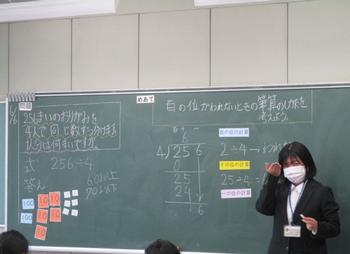 問題
256まいのおりがみを
4人で同じ数ずつ分けます
1人分は何まいですか。
式 256÷4
答え
60以上
70以下
100 10 10
100 10 10 10
めあて
百の位がわれないときの筆算のしかたを
考えよう。
6
4)256
0
25
24
16
百の位の計算
2÷4→われ
十の位の計算
25÷4=6
一の位の計算